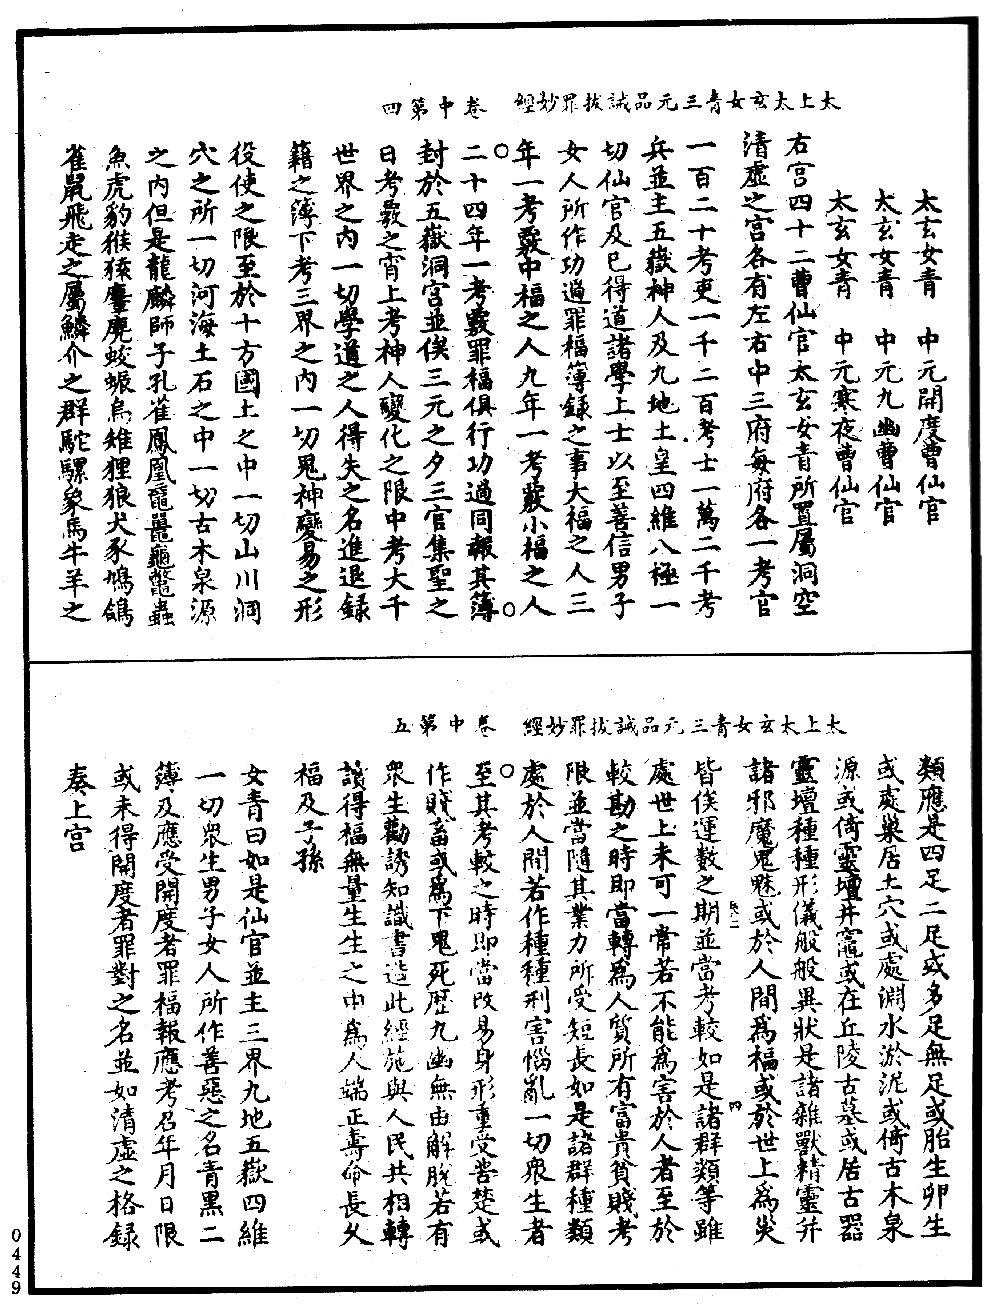 太上太玄女青三元品誡拔罪妙經　卷中第四
太玄女青　中元開度曹仙官
太玄女青　中元九幽曹仙官
太玄女青　中元寒夜曹仙官
右宫四十二曹仙官太玄女青所置屬洞空
清虛之宫各有左右中三府每府各一考官
一百二十考吏一千二百考士一萬二千考
兵並主五嶽神人及九地土皇四維八極一
切仙官及已得道諸學上士以至善信男子
女人所作功過罪福簿錄之事大福之人三
年一考覈中福之人九年一考覈小福之人
二十四年一考覈罪福俱行功過同報其簿
封於五嶽洞宫並俟三元之夕三官集聖之
日考覈之宵上考神人變化之限中考大千
世界之内一切學道之人得失之名進退錄
籍之簿下考三界之内一切鬼神變易之形
役使之限至於十方國土之中一切山川洞
穴之所一切河海土石之中一切古木泉源
之内但是龍麟師子孔雀鳳凰黿鼉龜鼈蟲
魚虎豹猴猿麞麂蛟蜃烏雉狸狼犬豕鳩鴿
雀鼠飛走之屬鱗介之群駝騾象馬牛羊之
太上太玄女青三元品誡拔罪妙經　卷中第五
類應是四足二足或多足無足或胎生卵生
或處巢居土穴或處淵水淤泥或倚古木泉
源或倚靈壇井竈或在丘陵古墓或居古器
靈壇種種形儀般般異狀是諸雜獸精靈并
諸邪魔鬼魅或於人間為福或於世上為災
皆俟運數之期並當考較如是諸群類等雖
處世上未可一常若不能為害於人者至於
較勘之時即當轉為人質所有富貴貧賤考
限並當隨其業力所受短長如是諸群種類
處於人間若作種種刑害惱亂一切衆生者
至其考較之時即當改易身形重受苦楚或
作賤畜或為下鬼死歷九幽無由解脫若有
衆生勸誘知識書造此經施與人民共相轉
讀得福無量生生之中為人端正壽命長久
福及子孫
女青曰如是仙官並主三界九地五嶽四維
一切衆生男子女人所作善惡之名青黑二
簿及應受開度者罪福報應考召年月日限
或未得開度者罪對之名並如清虛之格錄
奏上宫
0449